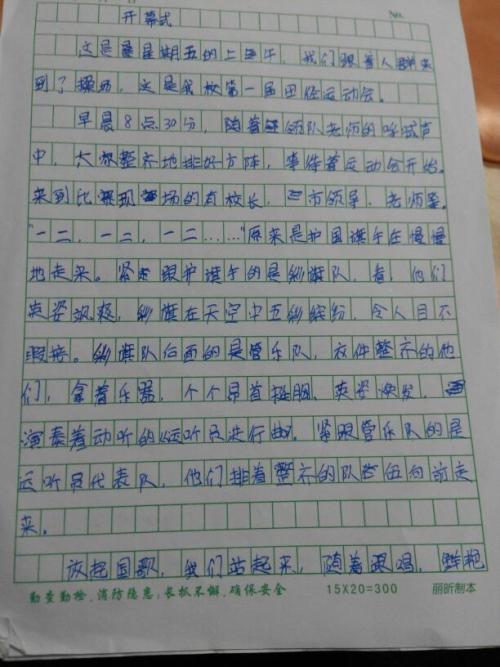 No.
开幕式
这是星期五的上午，我们跟着人群来
到了操场，这是我校第一届田径运动会。
早晨8点30分，随着领队老师的呼喊声
中，大家整齐地排好方阵，等待着运动会开始。
来到比赛现场的有校长，市领导，老师等。
"一二，一二，一二……"原来是护国旗手在慢慢
地走来。紧跟护旗手的是彩旗队，看，他们
英姿飒爽，彩旗在天空中五彩缤纷，令人目不
暇接。彩旗队后面的是管乐队，衣件整齐的他
们，拿着乐器，个个昂首挺胸，英姿焕发，
演奏着动听的《运动员进行曲。紧跟管乐队的是
运动员代表队，他们排着整齐的队伍向前走
来。
放起国歌，我们站起来，随着跟唱，鲜艳
勤查勤检,消防隐患;长抓不懈,确保安全 15X20=300 丽昕制本